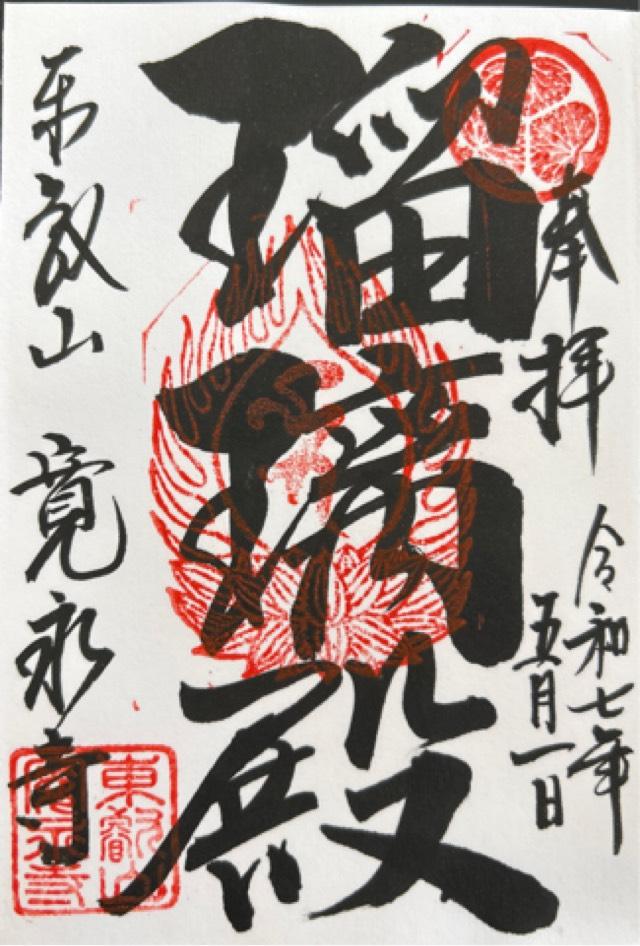 奉拝
令和七年
五月一日
瑠璃殿
東叡山 寛永寺
東叡山
寛永寺